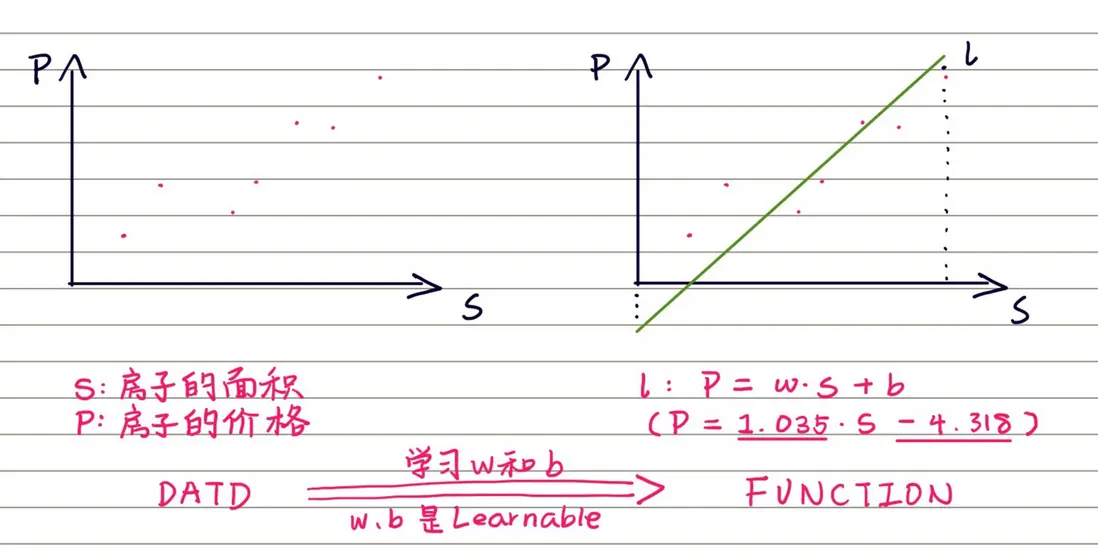 P
S
P
l
S
S: 房子的面积
P: 房子的价格
l: P = w·s + b
(P = 1.035·S - 4.318)
DATD
学习w和b
w、b是Learnable
FUNCTION